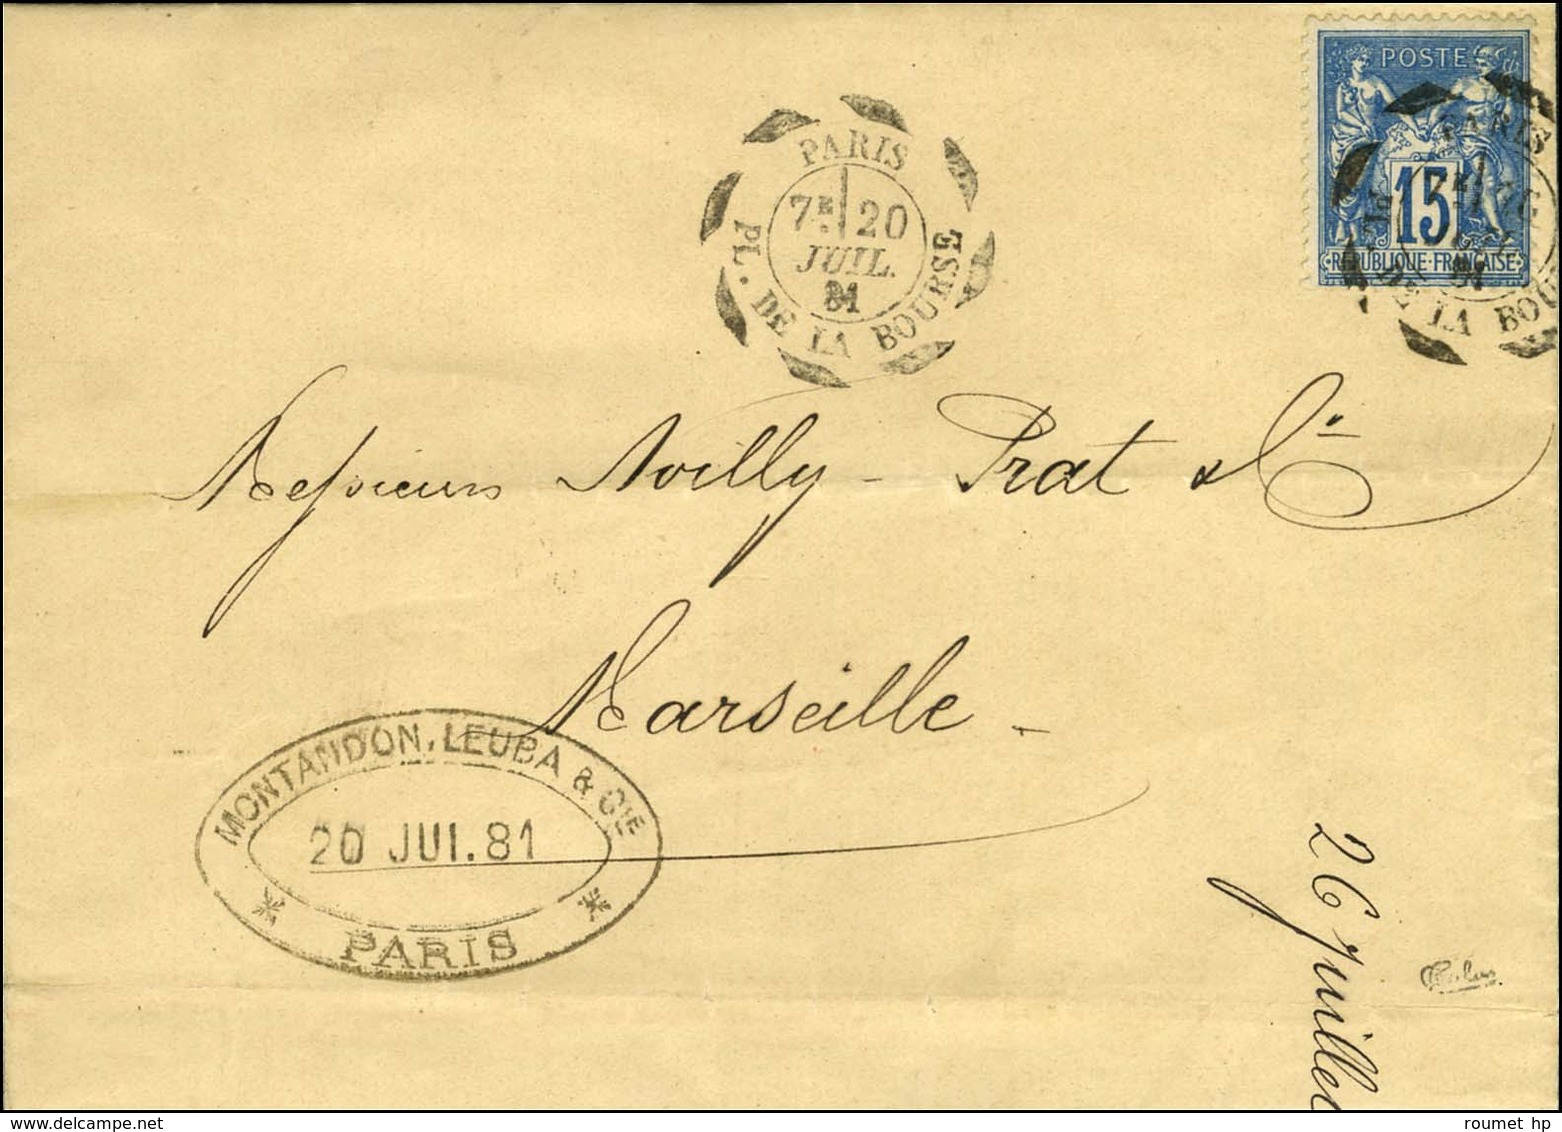 POSTE
15
REPUBLIQUE · FRANÇAISE
PARIS
7E 20
JUIL.
81
PL. DE LA BOURSE
PARIS
7E
81
PL. DE LA BOU
Messieurs Noilly-Prat & Cie
Marseille -
MONTANDON, LEUBA & CIE
20 JUI.81
PARIS
26 Juillet
© roumet hp